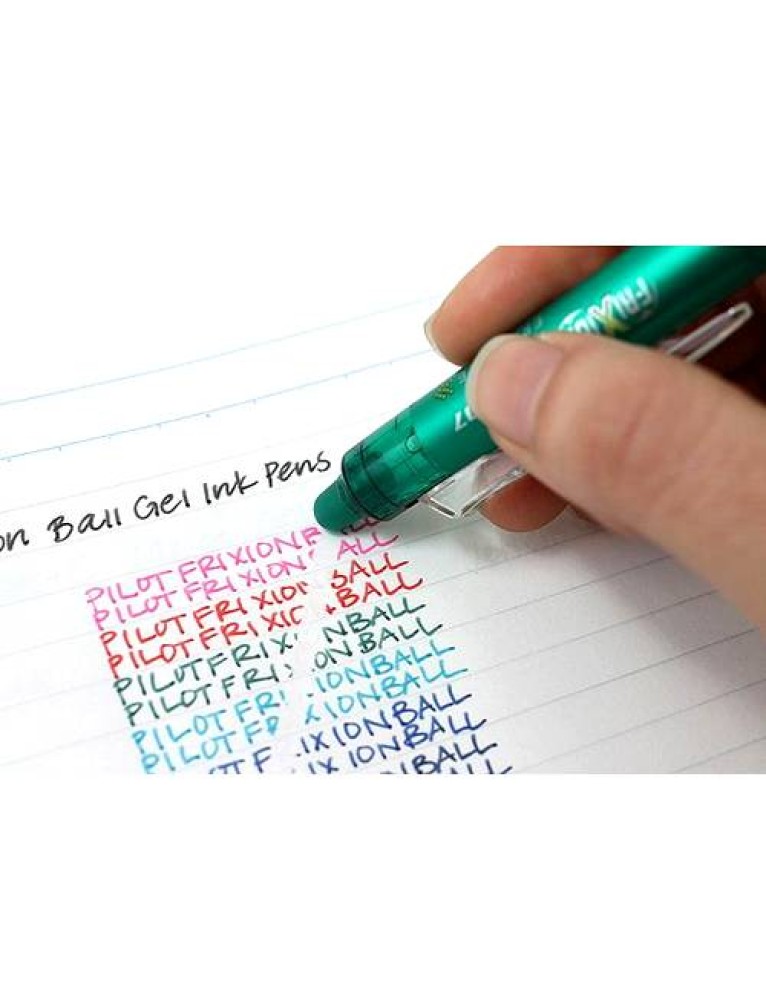 FRIXION
07
on Ball Gel Ink Pens
PILOT FRIXION B
PILOT FRIXION ALL
PILOT FRIXION BALL
PILOT FRIXIO BALL
PILOT FRIXI NBALL
PILOT FRI ON BALL
PILOT FRI IONBALL
PILOT FR XIONBALL
OT F IXIONBALL
IXIONBALL
BALL